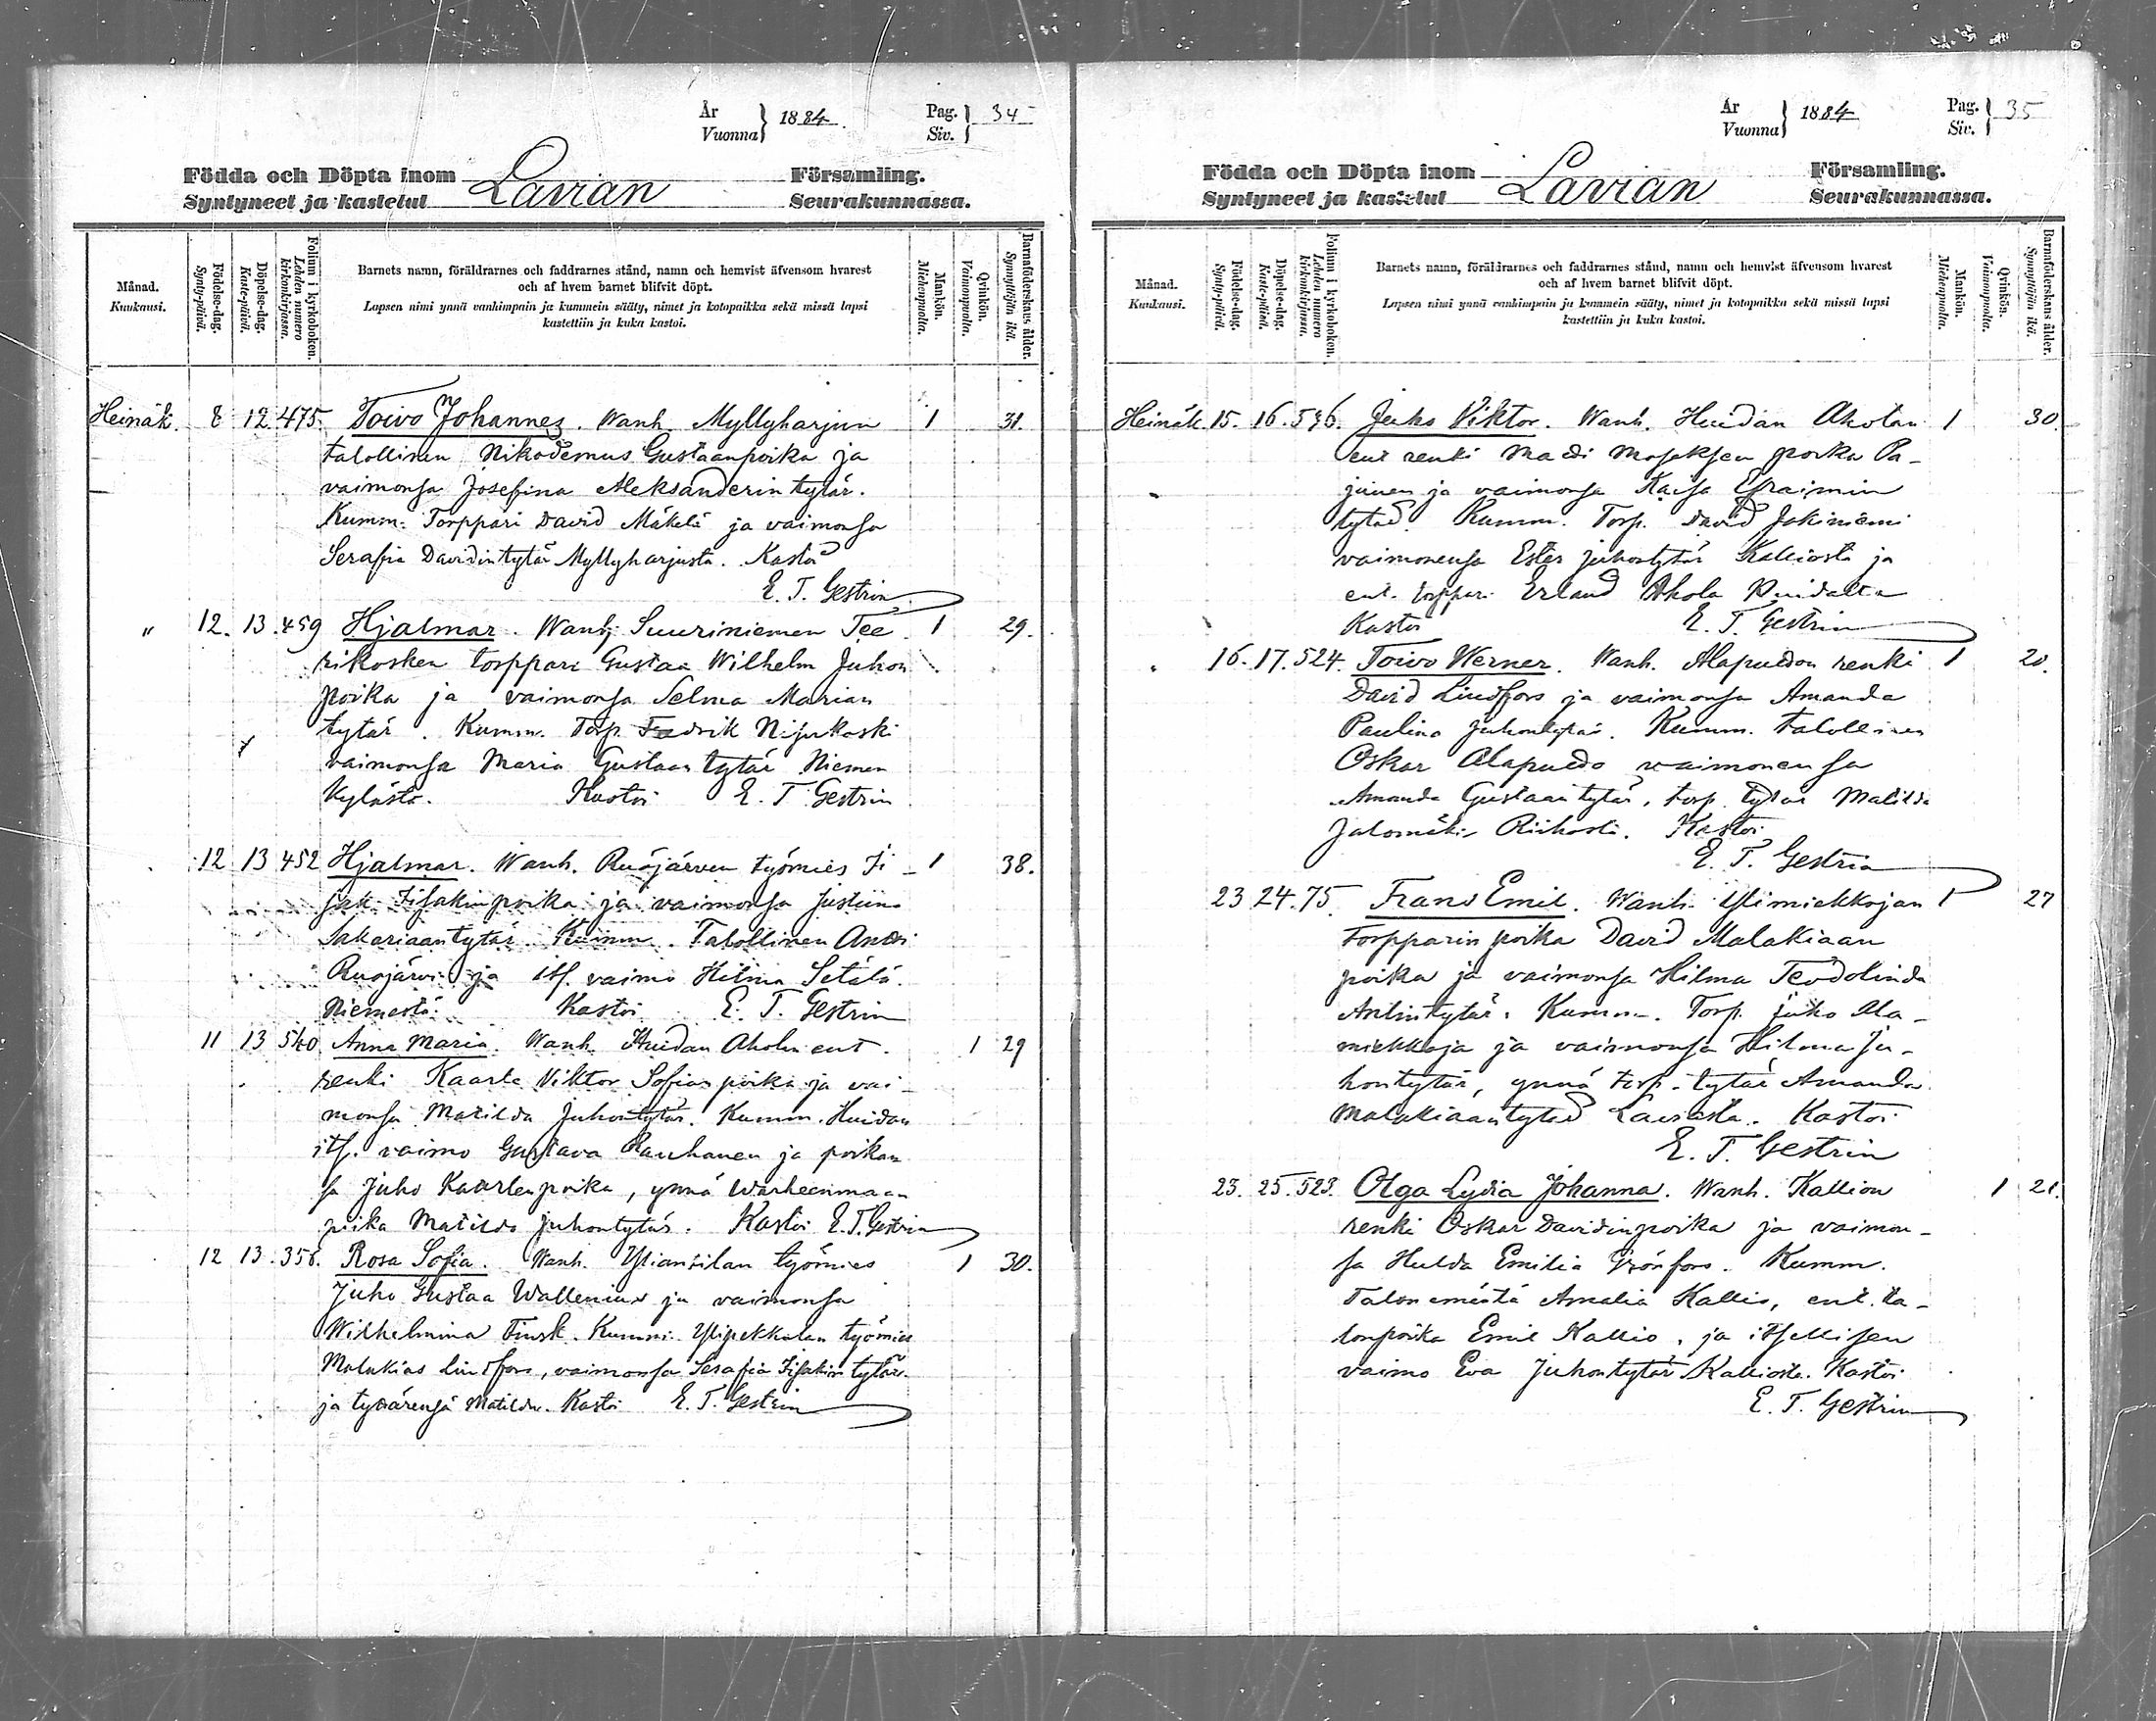 År
Vuonna } 1884. Pag.
Siv. } 34
Födda och Döpta inom Lavian Församling.
Syntyneet ja kastetut Seurakunnassa.
Månad.
Kuukausi.
Födelse-dag.
Synty-päivä.
Döpelse-dag.
Kaste-päivä.
Folium i kyrkoboken.
Lehden numero kirkonkirjassa.
Barnets namn, föräldrarnes och faddrarnes stånd, namn och hemvist äfvensom hvarest
och af hvem barnet blifvit döpt.
Lapsen nimi ynnä vanhimpain ja kummein sääty, nimet ja kotopaikka sekä missä lapsi
kastettiin ja kuka kastoi.
Mankön.
Miehenpuolta.
Qvinkön.
Vaimonpuolta.
Barnaföderskans ålder.
Synnyttäjän ikä.
Heinäk. 8 12 475. Toivo Johannes. Wanh. Myllyharjun 1 31.
talollinen Nikodemus Gustaanpoika ja
vaimonsa Josefina Aleksanderintytär.
Kumm. Torppari David Mäkelä ja vaimonsa
Serafia Davidintytär Myllyharjusta. Kastoi
E. T. Gestrin
" 12. 13. 459 Hjalmar. Wanh. Suuriniemen Tee 1 29.
rikosken torppari Gustaa Wilhelm Juhon
poika ja vaimonsa Selma Marian
tytär. Kumm. Torp. Fredrik Nijukoski
vaimonsa Maria Gustaantytär Niemen
kylästä. Kastoi E. T. Gestrin
12 13 452 Hjalmar. Wanh. Ruojärven työmies Ii- 1 38.
sak Iisakinpoika ja vaimonsa Justiina
Sakariaantytär. Kumm. Talollinen Antti
Ruojärvi ja itl. vaimo Hilma Setälä
Niemestä. Kastoi E. T. Gestrin
11 13 540 Anna Maria. Wanh. Huidan Aholan ent. 1 29
renki Kaarle Viktor Sofianpoika ja vai-
monsa Matilda Juhontytär. Kumm. Huidan
itl. vaimo Gustava Rauhanen ja poikan
sa Juho Kaarlenpoika, ynnä Warheenmaan
piika Matilda Juhontytär. Kastoi E. T. Gestrin
12 13. 356. Rosa Sofia. Wanh. Yliantilan työmies 1 30.
Juho Gustaa Wallenius ja vaimonsa
Wilhelmina Finsk. Kumm. Ylipekkolan työmies
Malakias Lindfors, vaimonsa Serafia Iisakintytär
ja tytärensä Matilda. Kastoi E. T. Gestrin
År
Vuonna } 1884 Pag.
Siv. } 35
Födda och Döpta inom Lavian Församling.
Syntyneet ja kastetut Seurakunnassa.
Månad.
Kuukausi.
Födelse-dag.
Synty-päivä.
Döpelse-dag.
Kaste-päivä.
Folium i kyrkoboken.
Lehden numero kirkonkirjassa.
Barnets namn, föräldrarnes och faddrarnes stånd, namn och hemvist äfvensom hvarest
och af hvem barnet blifvit döpt.
Lapsen nimi ynnä vanhimpain ja kummein sääty, nimet ja kotopaikka sekä missä lapsi
kastettiin ja kuka kastoi.
Mankön.
Miehenpuolta.
Qvinkön.
Vaimonpuolta.
Barnaföderskans ålder.
Synnyttäjän ikä.
Heinäk. 15. 16. 536. Juho Viktor. Wanh. Huidan Aholan 1 30.
ent renki Matti Moseksen poika Pa-
junen ja vaimonsa Kaisa Efraimin
tytär. Kumm. Torp. David Jokiniemi
vaimonensa Ester Juhontytär Kalliosta ja
ent. torppari Erland Ahola Huidalta
Kastoi E. T. Gestrin
16. 17. 524. Toivo Werner. Wanh. Alapuodon renki 1 20.
David Lindfors ja vaimonsa Amanda
Paulina Juhontytär. Kumm. talollinen
Oskar Alapuoto vaimonensa
Amanda Gustaantytär, torp. tytär Matilda
Jalomäki Riihosta. Kastoi
E. T. Gestrin
23 24. 75. Frans Emil. Wanh. Ylimiekkojan 1 27
torpparin poika David Malakiaan
poika ja vaimonsa Hilma Teodolinda
Antintytär. Kumm. Torp. Juho Ala-
miekkoja ja vaimonsa Hilma Ju-
hontytär, ynnä torp. tytär Amanda
Malakiaantytär Laviasta. Kastoi
E. T. Gestrin
23. 25. 523. Olga Lydia Johanna. Wanh. Kallion 1 21.
renki Oskar Davidinpoika ja vaimon-
sa Hulda Emilia Grönfors. Kumm.
Talon emäntä Amalia Kallio, ent. ta-
lonpoika Emil Kallio, ja itsellisen
vaimo Eva Juhontytär Kalliosta. Kastoi
E. T. Gestrin